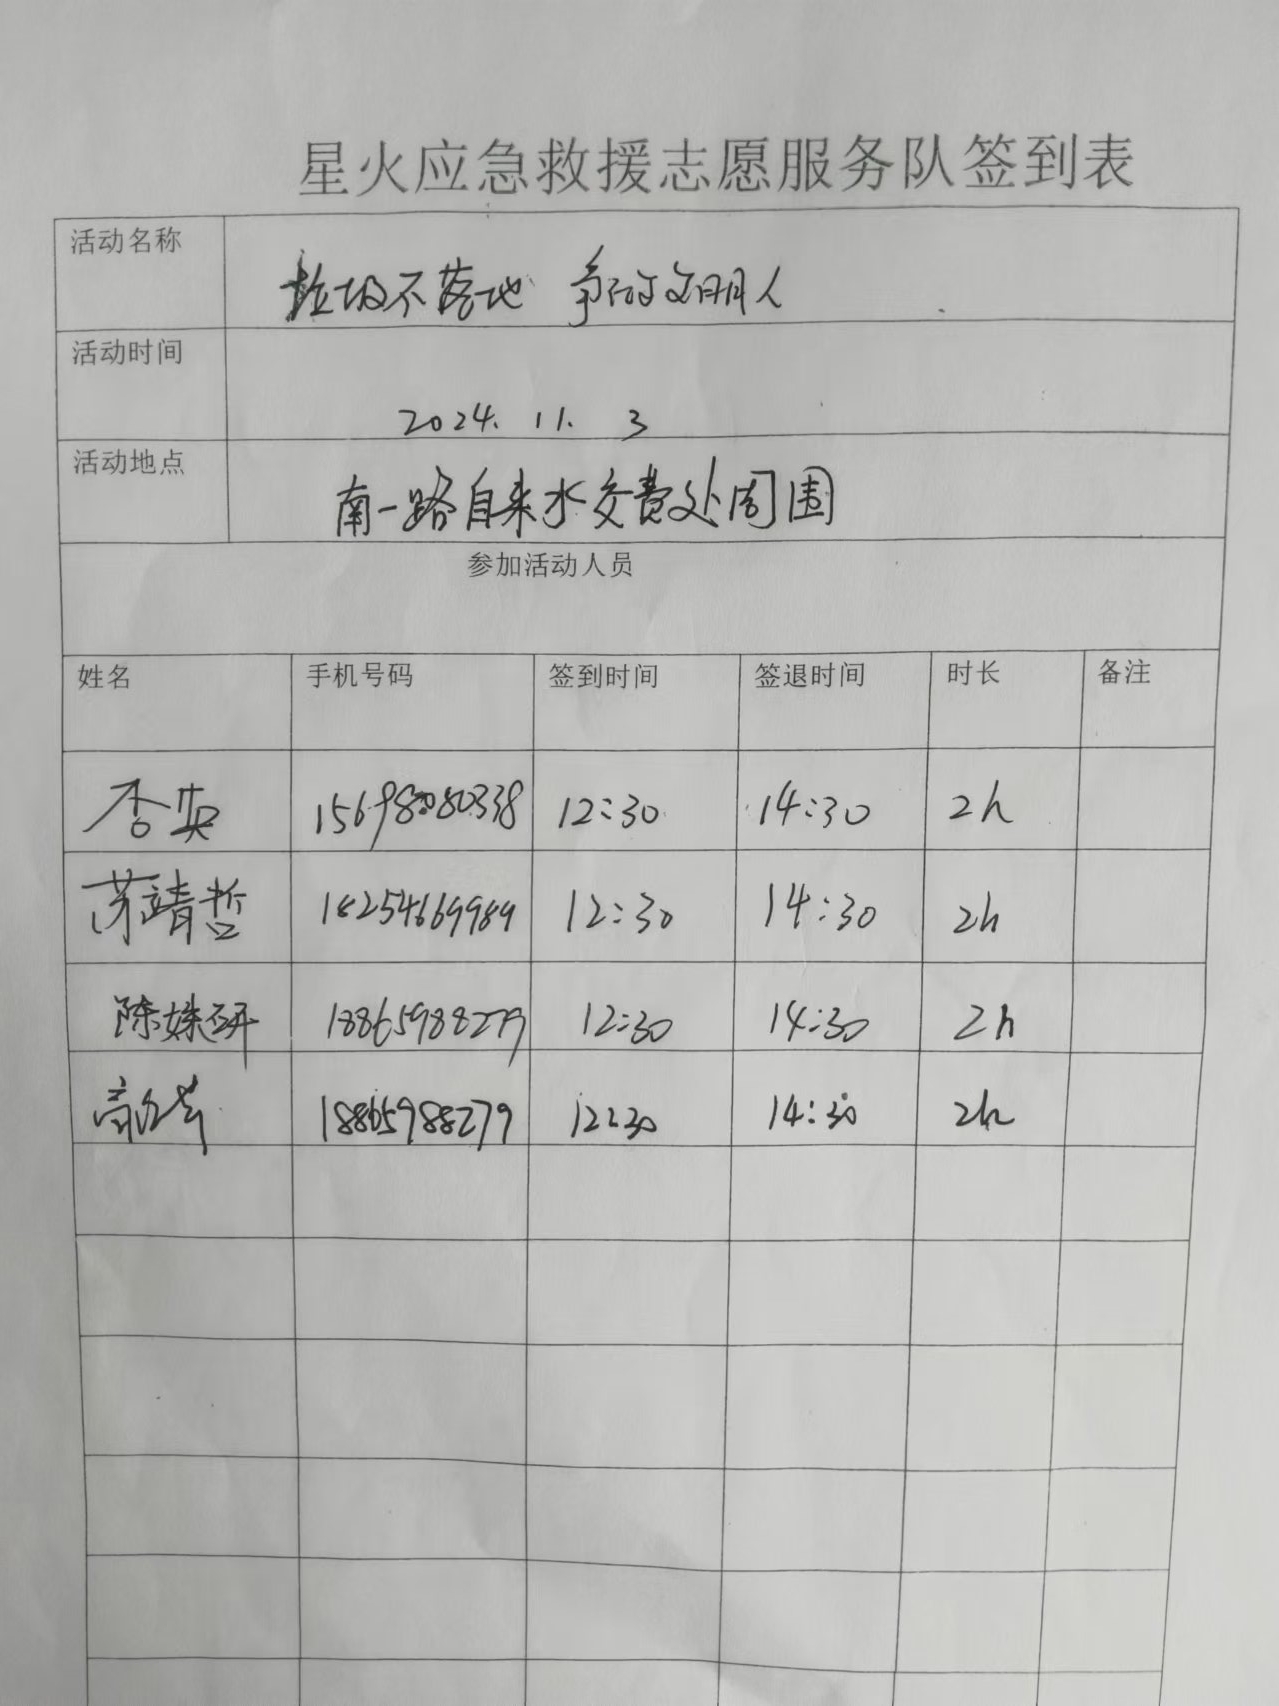 星火应急救援志愿服务队签到表
活动名称 垃圾不落地 争做文明人
活动时间 2024. 11. 3
活动地点 南一路自来水交费处周围
参加活动人员
姓名 手机号码 签到时间 签退时间 时长 备注
杏英 12:30 14:30 2h
茅靖哲 18254669989 12:30 14:30 2h
陈姝研 18865988279 12:30 14:30 2h
18865988279 12:30 14:30 2h